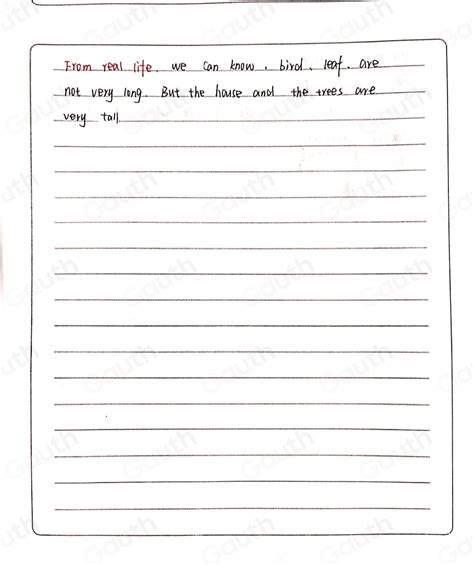 From real life, we can know, bird, leaf, are
not very long. But the house and the trees are
very tall.